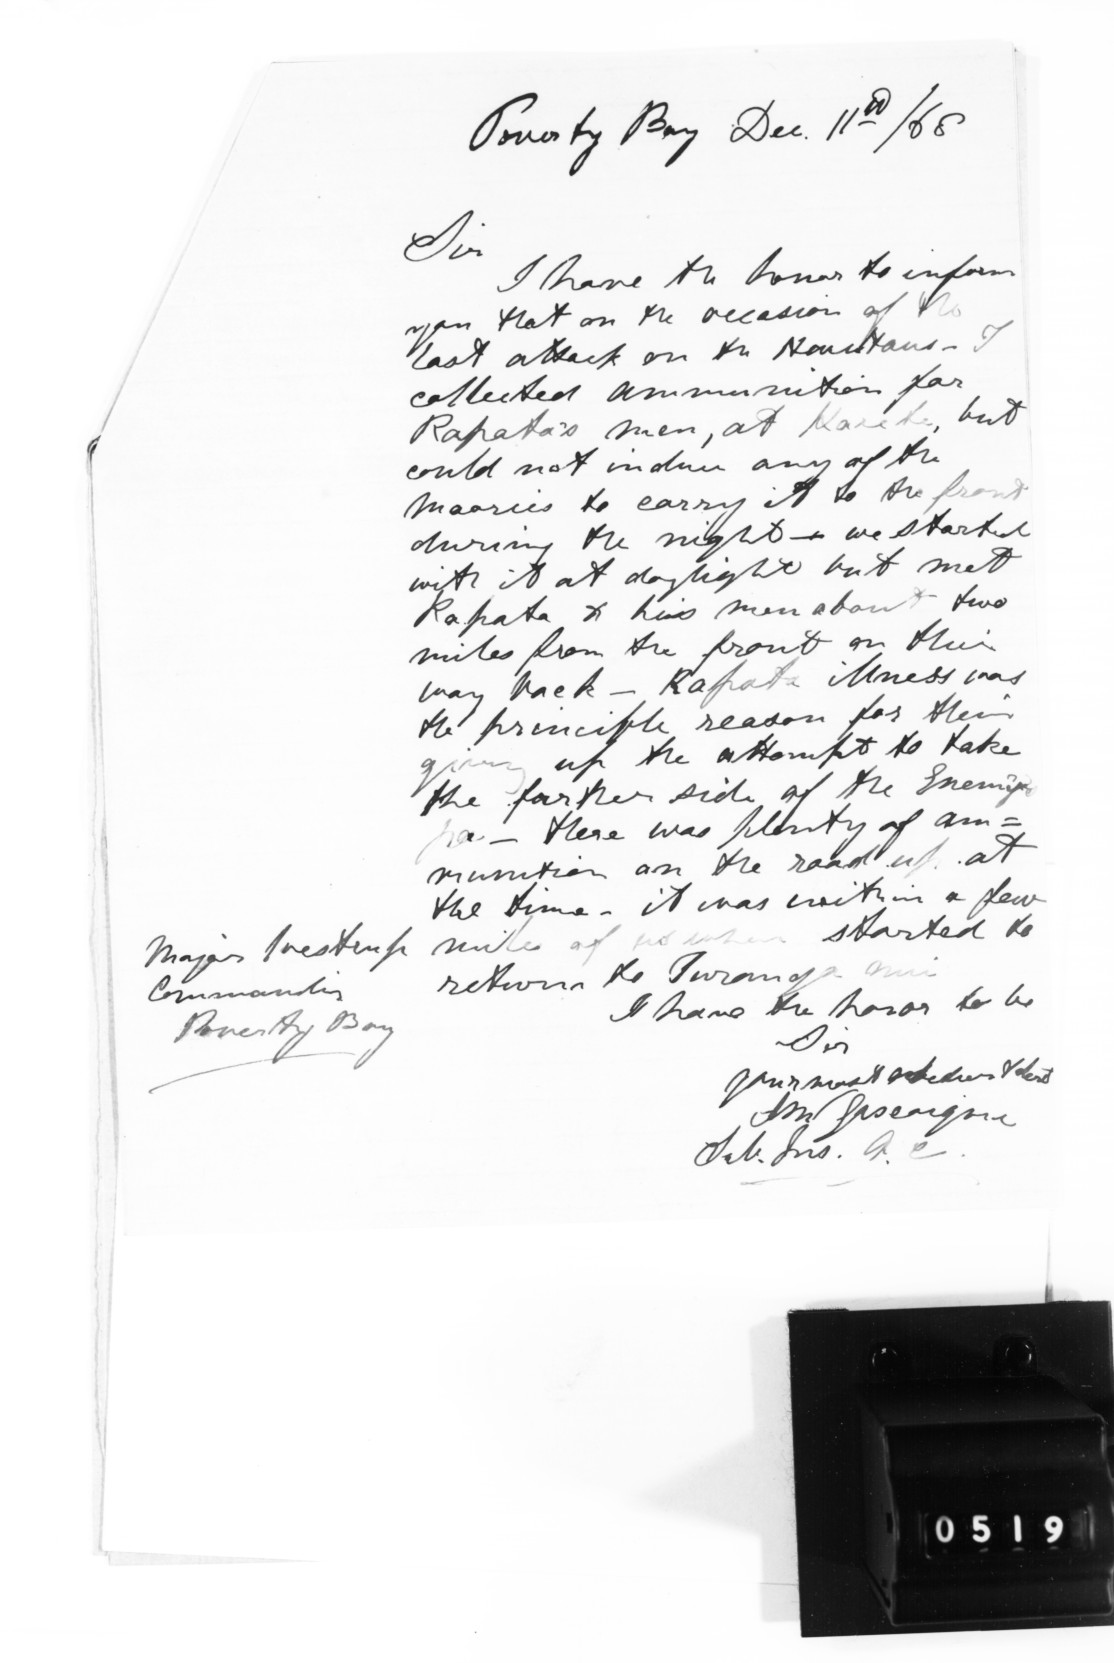 Poverty Bay Dec. 11th/68
Sir
I have the honor to inform
you that on the occasion of the
last attack on the Hauhaus - I
collected ammunition for
Rapata's men, at            , but
could not induce any of the
Maories to carry it to the front
during the night - we started
with it at daylight but met
Rapata & his men about two
miles from the front on their
way back - Rapata illness was
the principle reason for their
giving up the attempt to take
the further side of the Enemys
pa - there was plenty of am=
munition on the road up at
the time - it was within a few
miles of us when started to
return to Turanga nui
I have the honor to be
Sir
your most obedient Servt
Gascoigne
Sub. Ins. A. C.
Major Westrup
Commanding
Poverty Bay
0519